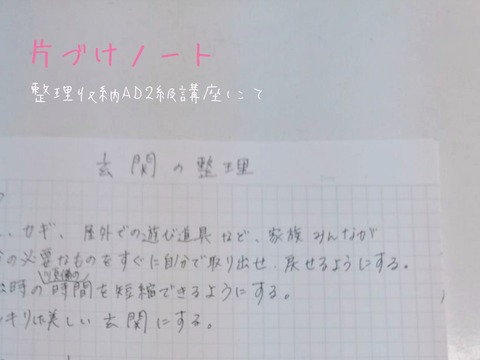 片づけノート
整理収納AD2級講座にて
玄関の整理
、カギ、屋外での遊び道具など、家族みんなが
の必要なものをすぐに自分で取り出せ、戻せるようにする。
時の時間を短縮できるようにする。
キリした美しい玄関にする。